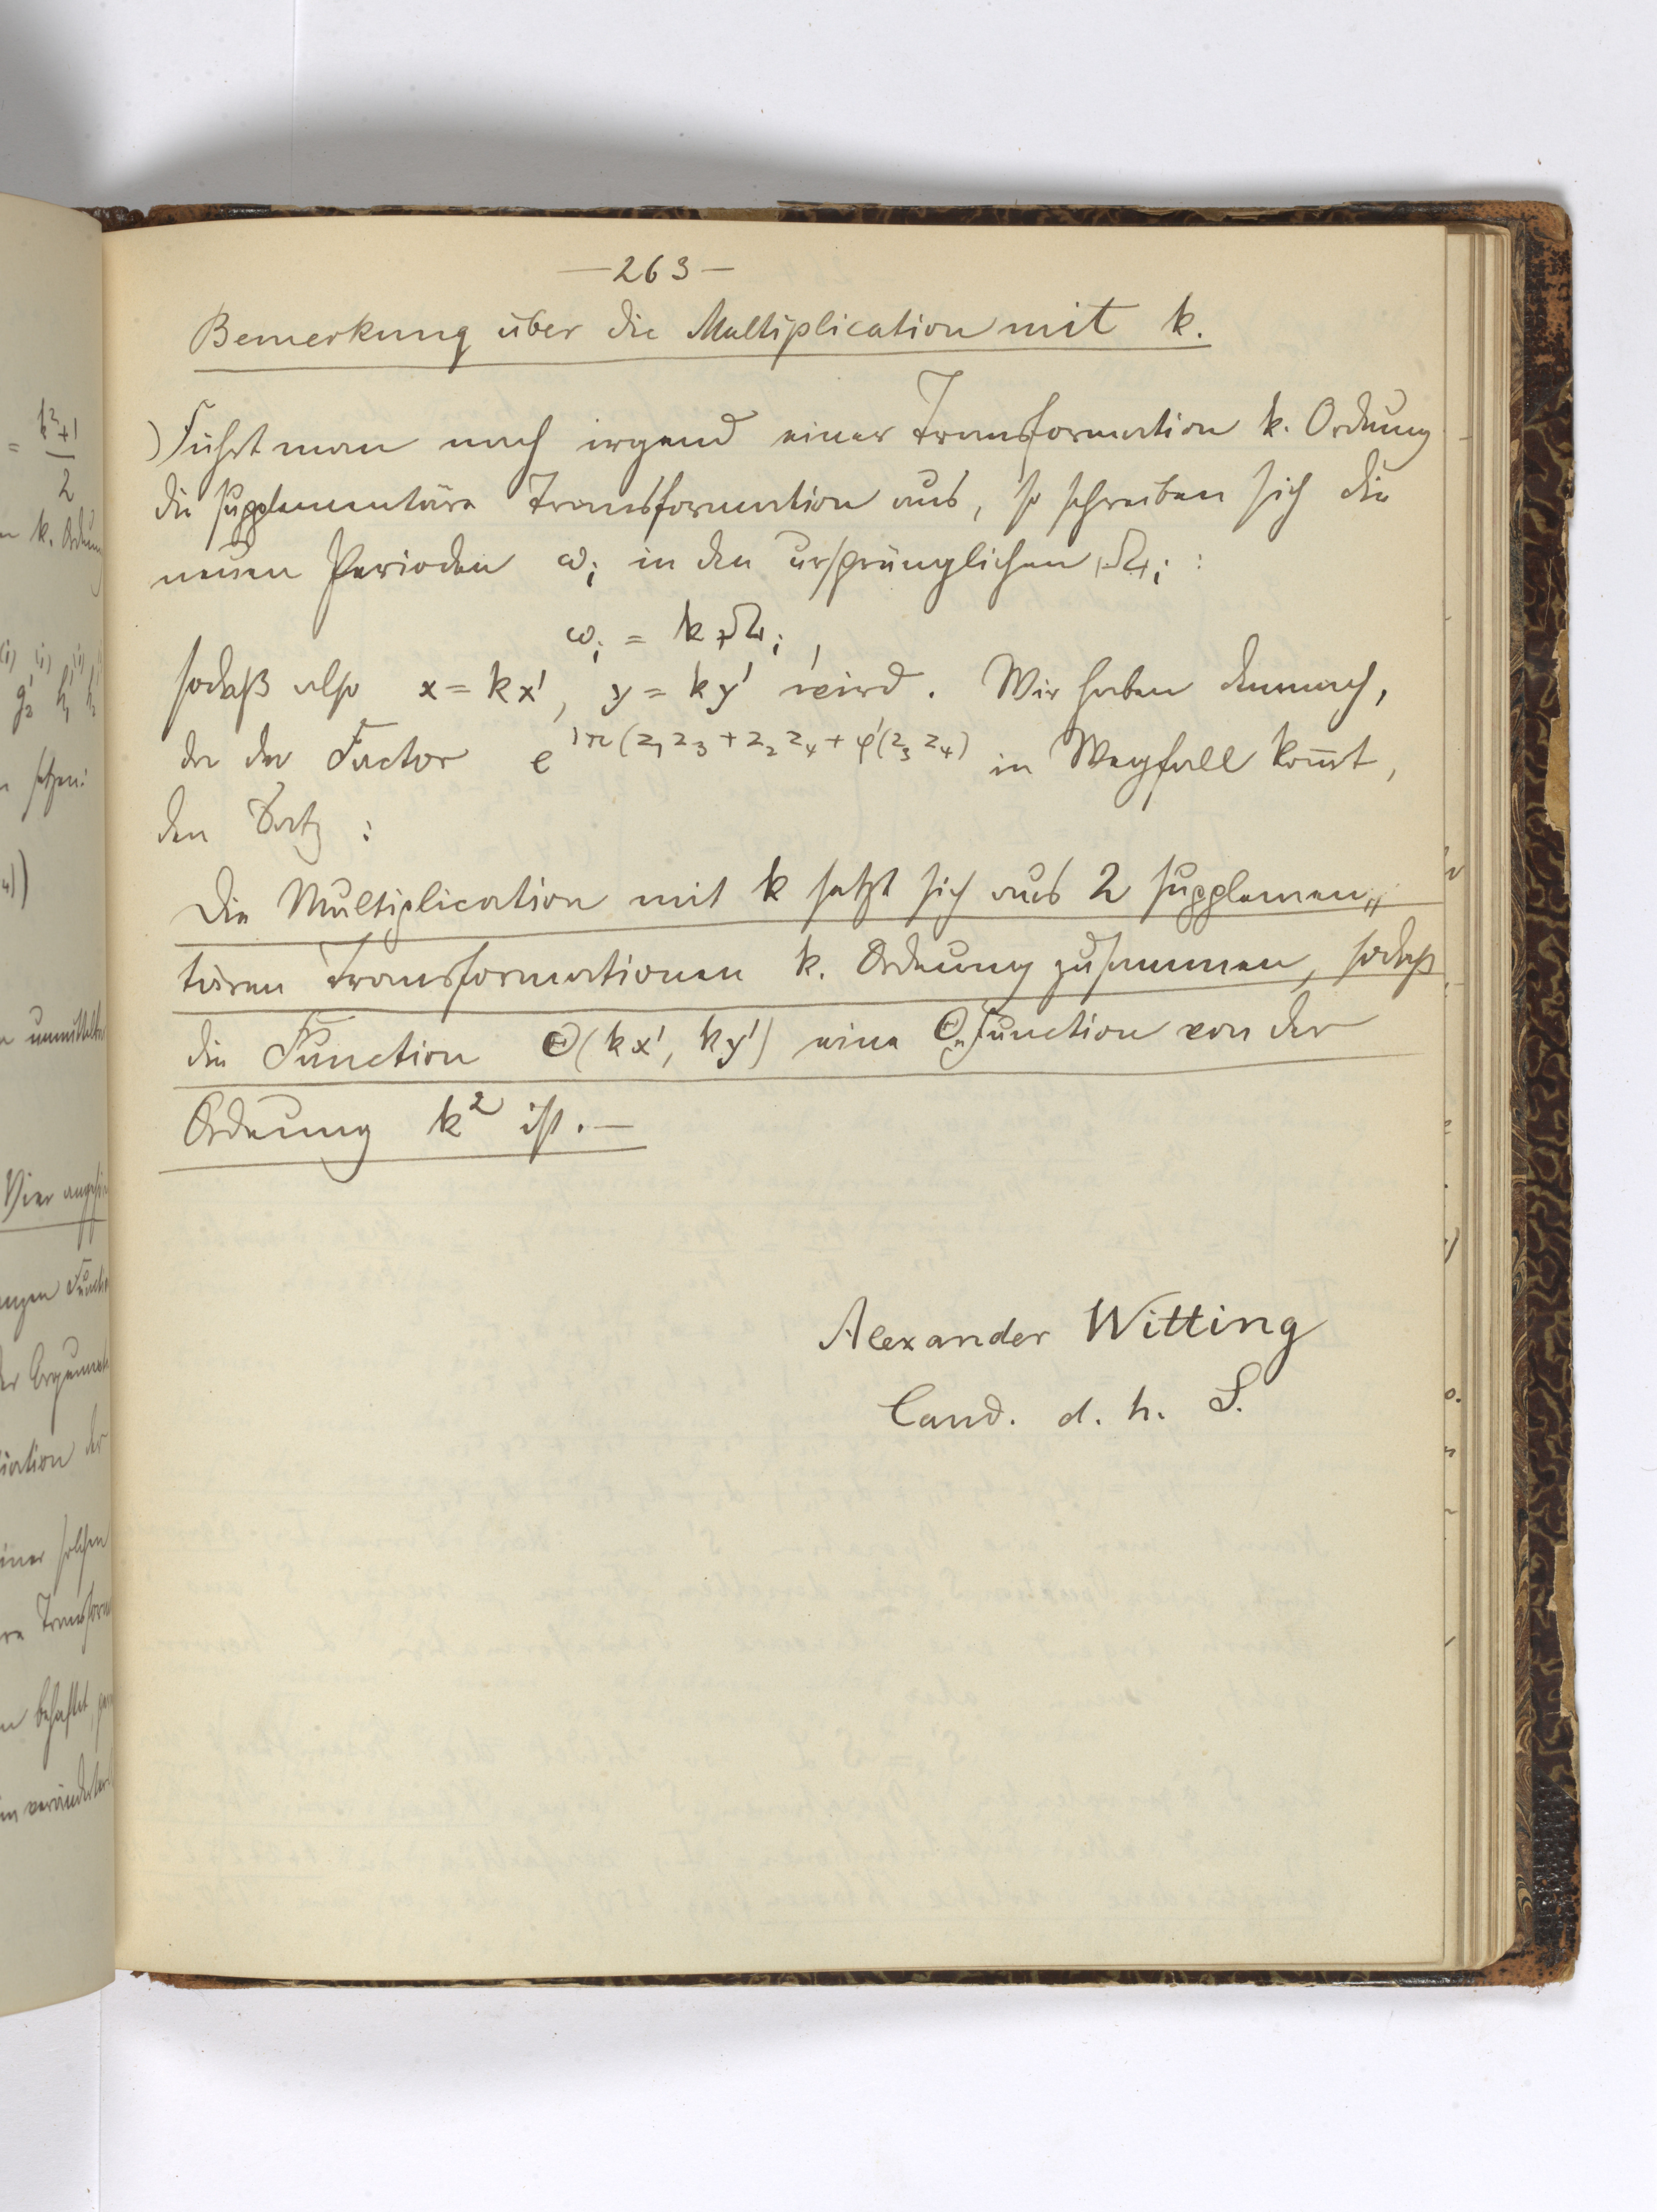 — 263 —
Bemerkung über die Multiplication mit k.
Führt man nach irgend einer Transformation k. Ordnung
die supplementäre Transformation aus, so schreiben sich die
neuen Perioden ωᵢ in den ursprünglichen Ωᵢ :
ωᵢ = k Ωᵢ ,
sodaß also x = kx', y = ky' wird. Wir haben demnach,
da der Factor e^{iπ(z₁z₃ + z₂z₄ + φ'(z₃z₄)} in Wegfall kom̄t,
den Satz :
Die Multiplication mit k setzt sich aus 2 supplemen„
tären Transformationen k. Ordnung zusammen, sodaß
die Function Θ(kx', ky') eine Θ Function von der
Ordnung k² ist. —
Alexander Witting
Cand. d. h. S.
= k²+1
2
k. Ordnun
setzen:
unmittelba
Vier
Functio
Argumente
der
einer solchen
Transform
behaftet,